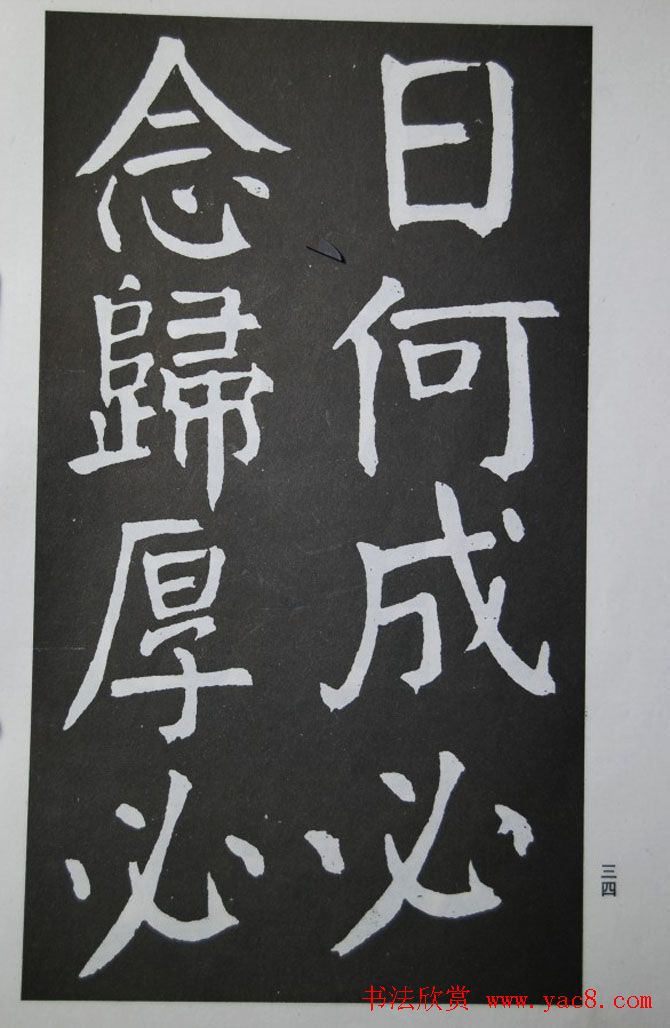 日何成必
念歸厚必
三四
书法欣赏 www.yac8.com